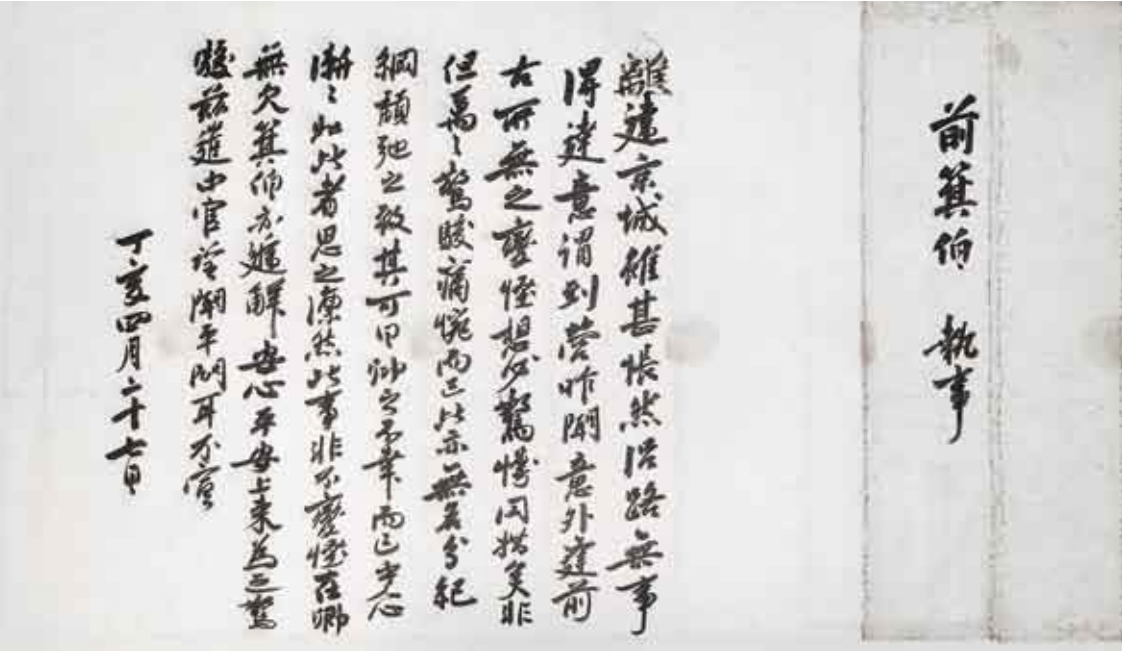 前箕伯 執事
離違京城雖甚悵然沿路無事
得達意謂到營昨聞意外達前
古所無之變怪想必驚愕罔措矣非
但萬〻驚駭痛惋而已此亦無名分紀
綱頹弛之致其可曰 而已 心
漸〻如此者思之凜然此事非不變怪在卿
無欠箕伯亦遞解安心平安上來為之驚
駭茲送中官 聞平聞耳不宣
丁亥四月二十七日